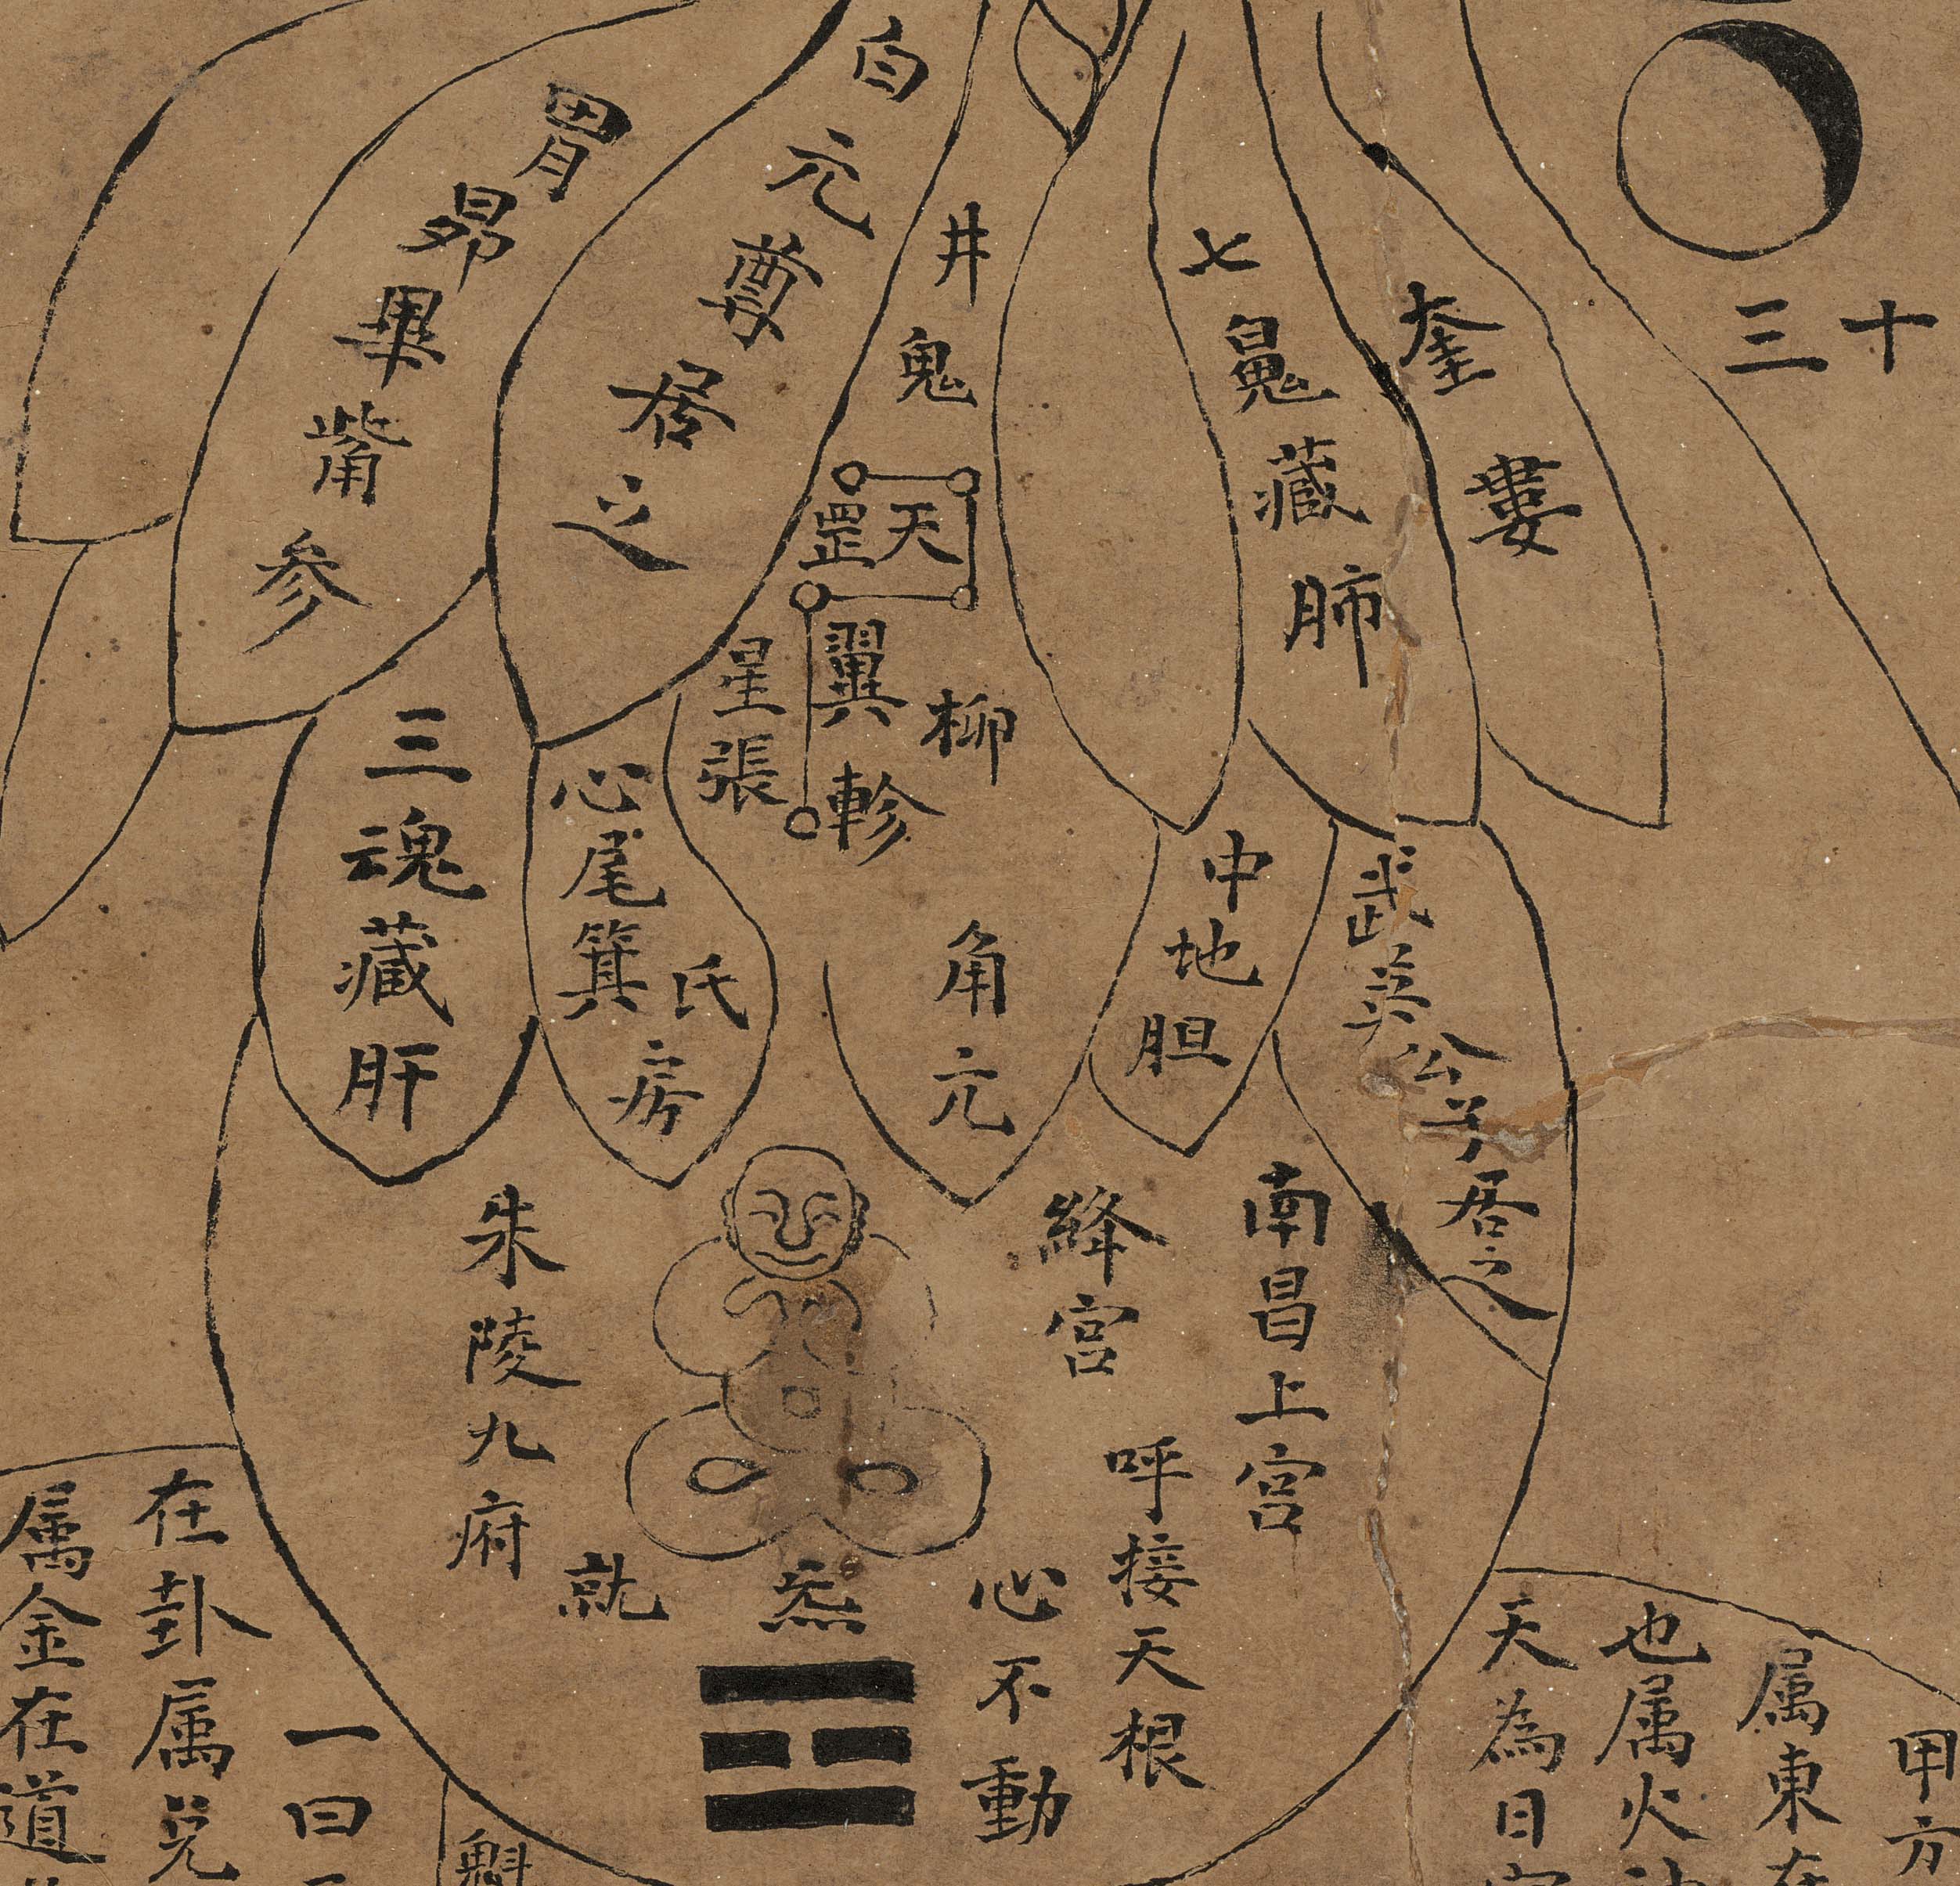 十三
奎婁
七鬼藏肺
武英公子居之
井鬼
天罡
柳
翼軫
星張
角亢
中地胆
白元尊居之
胃昴畢觜参
三魂藏肝
心尾箕
氏房
南昌上宮
絳宮
呼接天根
心不動
炁
就
朱陵九府
甲方
属東在
也属火
天為日
魁
一曰
在卦属兑
属金在道